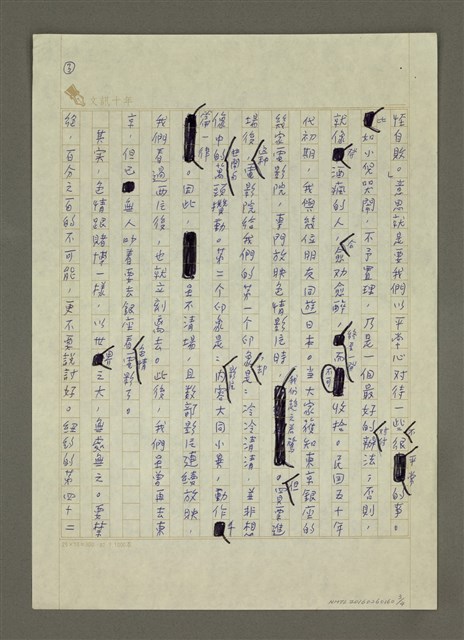 ③
文訊十年
怪自敗。」意思就是要我們以平常心對待一些很不平常的事。
此如小兒哭鬧，不予置理，乃是一個最好的對付辦法；否則，
就像發酒瘋的人，愈勸愈醉，而不可收拾。民國五十年
代初期，我與幾位朋友回遊日本。當大家獲知東京銀座的
幾家電影院，專門放映色情影片時，我們趨之若鶩。但買票進
場後，這些電影院給我們的第一個印象卻是：冷冷清清，並非想
像中的萬頭攢動。第二個印象是：內容大同小異，動作千
篇一律。因此，雖不清場，且數部影片連續放映，
我們看過兩片後，也就立刻離去。此後，我們雖曾再去東
京，但已無人吵著要去銀座看色情電影了。
其實，色情跟賭博一樣，以世界之大，無處無之。要禁
絕，百分之百的不可能，更不要說討好。紐約的第四十二